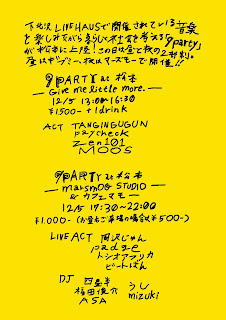 下北沢 LIVEHAUSで開催されている音楽
を楽しみながら暮らしや社会を考える「9party」
が松本に上陸！この日は昼と夜の2部制。
昼はギブミー、夜はマーズモーで開催!!
9PARTY at 松本
— Give me little more. —
12/5 13:00~16:30
¥1500- +1drink
ACT TANGINGUGUN
paycheck
Zen101
MOOS
9PARTY at 松本
— marsmoo STUDIO —
& カフェマモー
12/5 17:30~22:00
¥1.000- (お昼もご来場の場合は¥500-)
LIVE ACT 岡沢じゅん
padge
トシオアフリカ
ビートばん
DJ 四星半
福田俊介
ASA
うし
mizuki